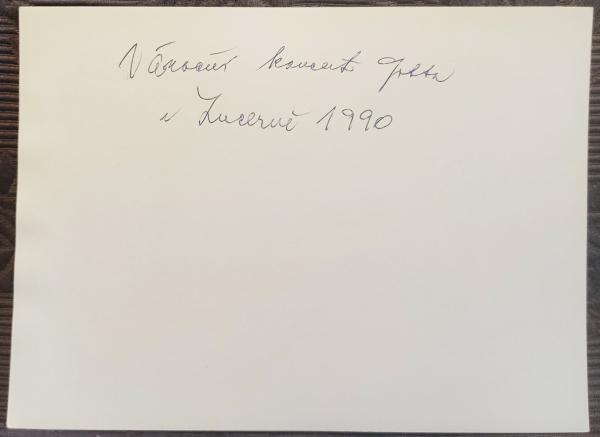 Vánoční koncert Gotta
v Lucerně 1990